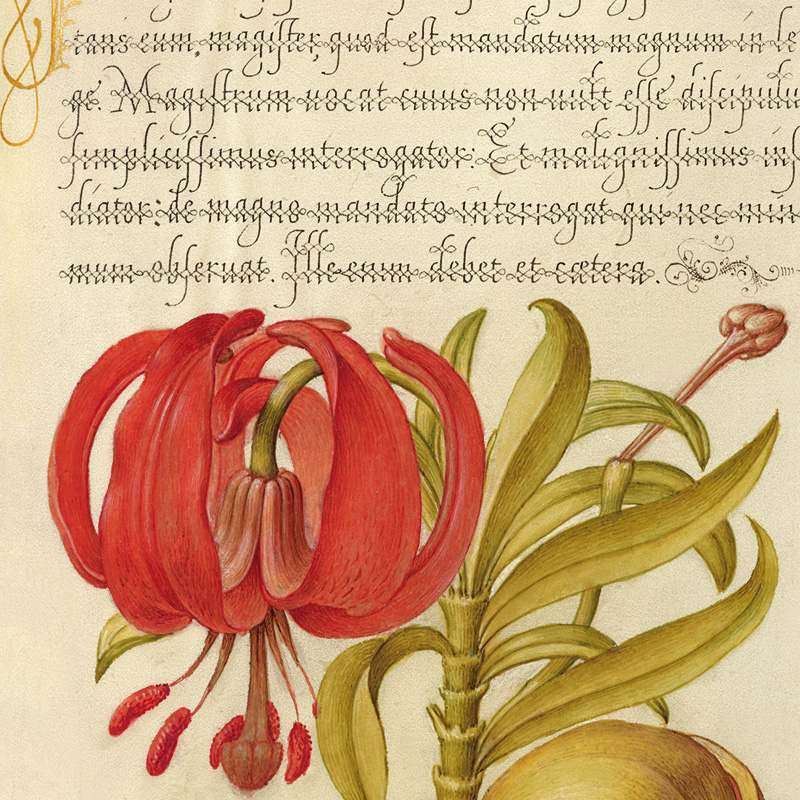 tans eum, magister, quod est mandatum magnum in le
ge. Magistrum vocat cuius non vult esse discipulu
simplicissimus interrogator: Et malignissimus ins
diator: de magno mandato interrogat qui nec mini
mum obseruat. Ille enim debet et cætera.